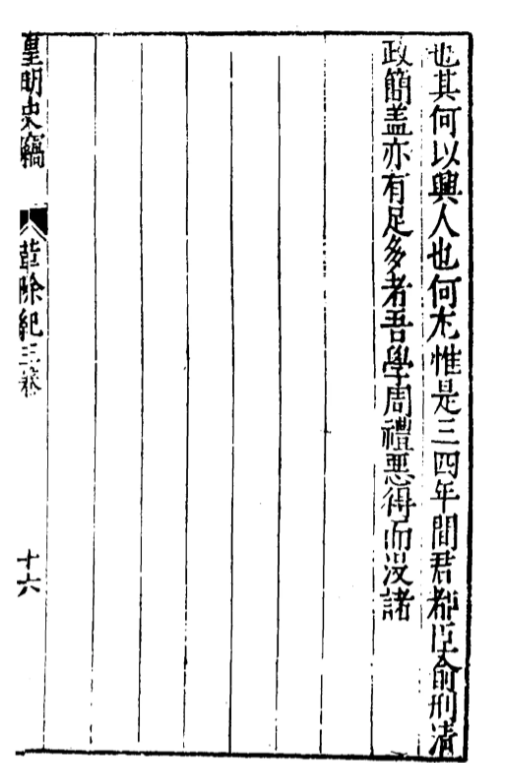 也其何以興人也何尤惟是三四年間君都臣俞刑清
政簡盖亦有足多者吾學周禮惡得而没諸
皇明史竊 革除紀三卷 十六